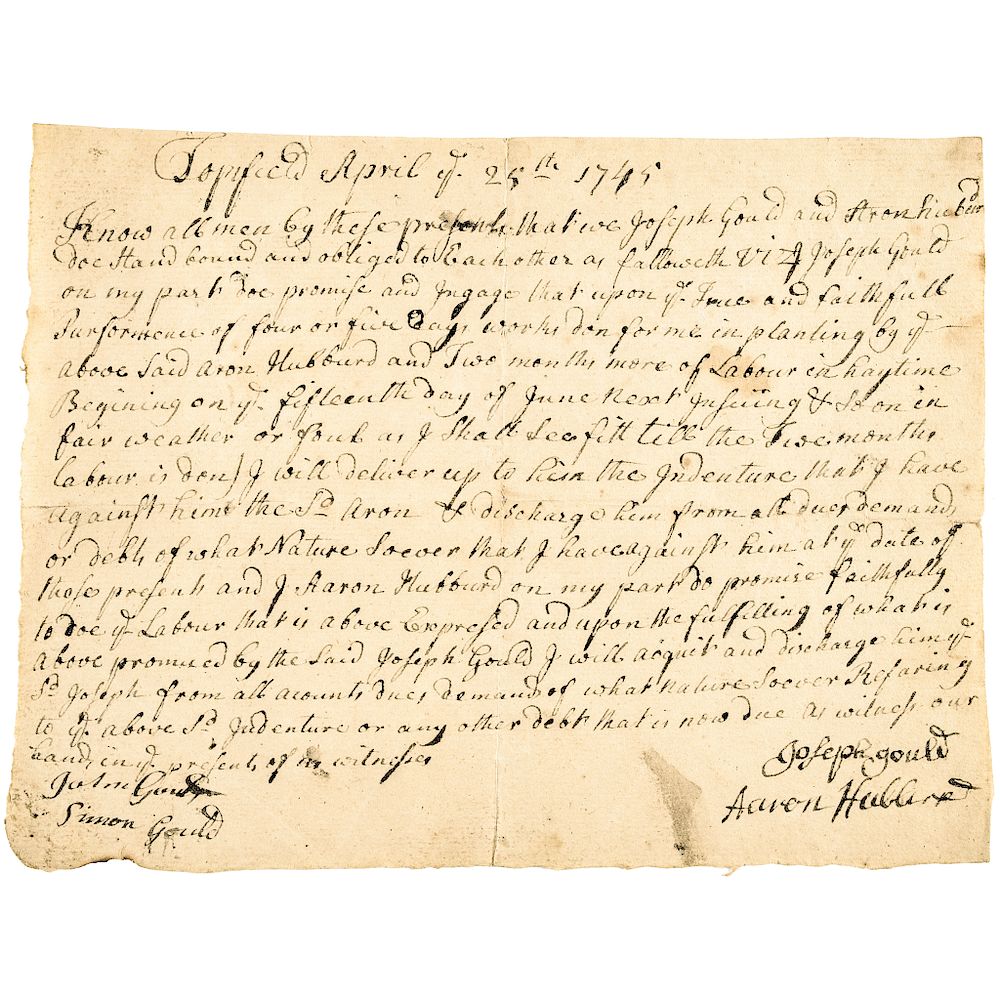 Topsfield April ye 28th 1745
Know all men by these presents that we Joseph Gould and Aron Hubburd
doe Stand bound and obliged to Each other as falloweth Viz I Joseph Gould
on my part doe promise and Ingage that upon ye True and faithfull
Purformence of four or five Days works don for me in planting by ye
above Said Aron Hubburd and Two months more of Labour in haytime
Begining on ye fifteenth day of June Next Insuiing & So on in
fair weather or foul as I Shall See fitt till the Two months
Labour is don) I will deliver up to him the Indenture that I have
against him the Sd Aron & discharge him from all dues demands
or debts of what Nature Soever that I have against him at ye date of
those presents and I Aaron Hubburd on my part do promise faithfully
to doe ye Labour that is above Expresed and upon the fulfilling of what is
above promised by the Said Joseph Gould I will acquit and discharge him ye
Sd Joseph from all acounts dues demands of what nature Soever Refaring
to ye above Sd Indenture or any other debt that is now due as witness our
hands in ye presents of us witneses
Joseph gould
John Gould
Aaron Hubbard
Simon Gould